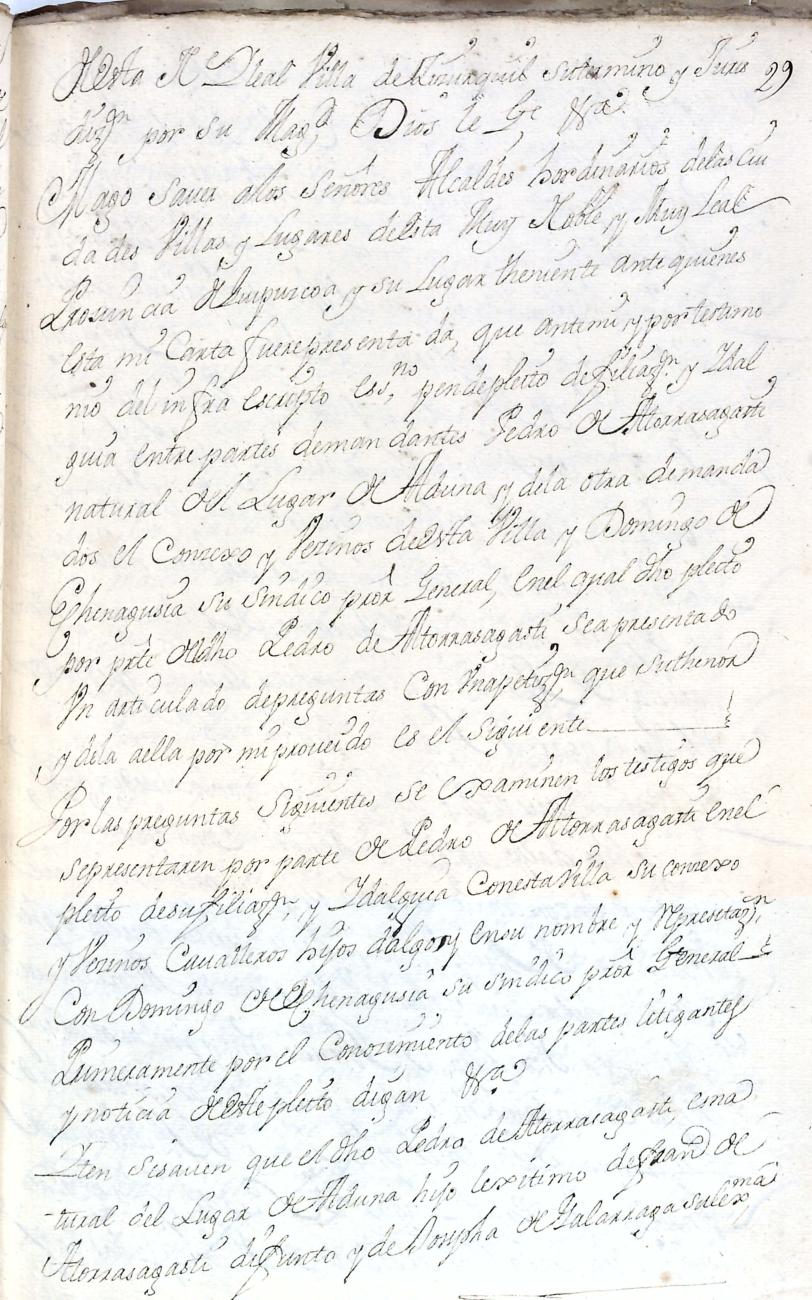 desta N.e y Leal Villa de Zizurquil su termino y Juris 29
dizn por su Magd, Dios le Ge &ra.
Hago saver alos señores Alcaldes hordinarios delas Ciu
dades Villas y Lugares desta Muy Noble, y Muy Leal
Provincia de Guipuzcoa, y su Lugar theniente ante quienes
esta mi Carta fuere presentada, que antemi, y por testimo
nio del infra escripto essno, pende pleito de filiazn, y Idal
guia entre partes demandantes Pedro de Atorrasagasti
natural del Lugar de Aduna, y dela otra demanda
dos el Conzexo, y Vezinos de esta Villa y Domingo de
Echenagusia su sindico pror General, enel qual dho pleito
por prte de dho Pedro de Atorrasagasti sea presentado
Un articulado depreguntas Con Vnapetizn, que suthenor
y dela aella por mi proveido es el siguiente
Por las preguntas siguientes se examinen los testigos que
sepresentaren por parte de Pedro de Atorrasagasti enel
pleito desufiliazn, y Idalguia Conesta Villa su conzexo
y Vezinos Cavalleros hijos dalgo y ensu nombre y Represetazn,
Con Domingo de Echenagusia su sindico pror General
Primeramente por el Conozimiento delas partes litigantes
y noticia de este pleito digan &ra
Iten sisaven que el dho Pedro de Atorrasagasti, esna
tural del Lugar de Aduna hijo lexitimo de Juan de
Atorrasagasti difunto y de Josepha de Galarraga sulexma